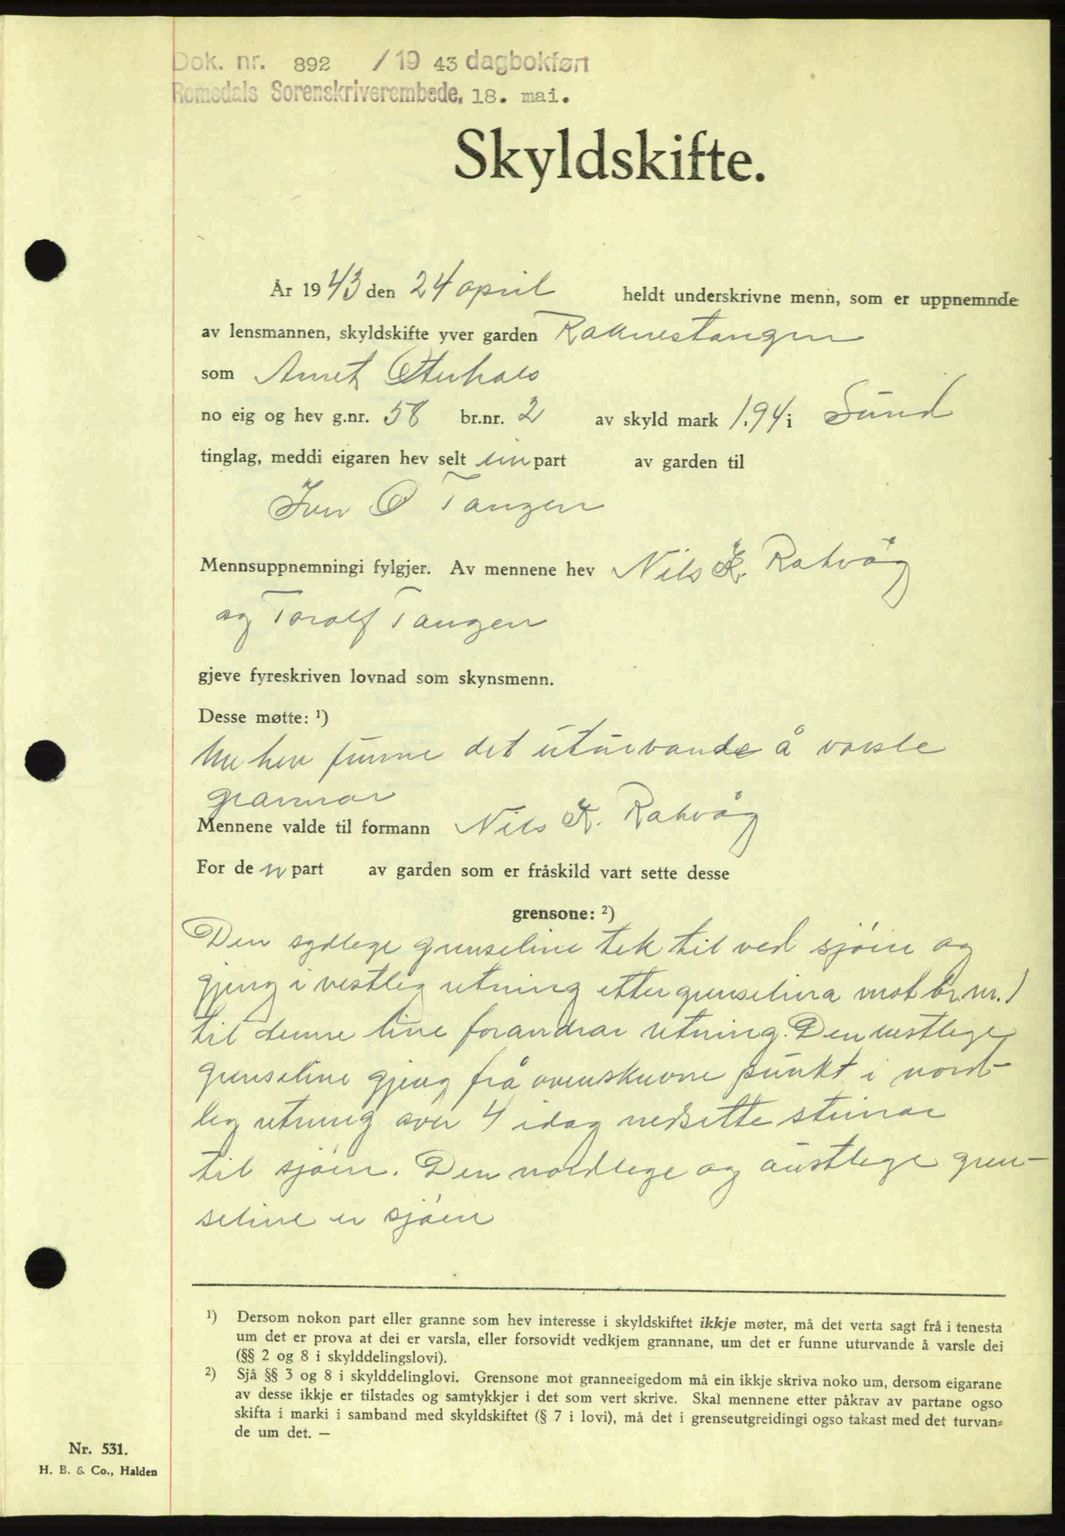 Dok. nr. 892 /19 43 dagbokført
Romsdals Sorenskriverembede, 18. mai.
Skyldskifte.
År 1943 den 24 april heldt underskrivne menn, som er uppnemnde
av lensmannen, skyldskifte yver garden Raknestangen
som Anret Oterhals
no eig og hev g.nr. 58 br.nr. 2 av skyld mark 1.94 i Sund
tinglag, meddi eigaren hev selt ein part av garden til
Iver O Tangen
Mennsuppnemningi fylgjer. Av mennene hev Nils K. Rakvåg
og Torolf Tangen
gjeve fyreskriven lovnad som skynsmenn.
Desse møtte: ¹)
Me hev funne det uturvande å varsle
grannar
Mennene valde til formann Nils K. Rakvåg
For den part av garden som er fråskild vart sette desse
grensone: ²)
Den sydlege grenseline tek til ved sjöen og
gjeng i vestleg retning etter grenselina mot br.nr. 1
til denne line forandrar retning. Den vestlege
grenseline gjeng frå ovenskrevne punkt i nord-
leg retning over 4 idag nedsette steinar
til sjöen. Den nordlege og austlege gren-
seline er sjöen
¹) Dersom nokon part eller granne som hev interesse i skyldskiftet ikkje møter, må det verta sagt frå i tenesta
um det er prova at dei er varsla, eller forsovidt vedkjem grannane, um det er funne uturvande å varsle dei
(§§ 2 og 8 i skylddelingslovi).
²) Sjå §§ 3 og 8 i skylddelinglovi. Grensone mot granneeigedom må ein ikkje skriva noko um, dersom eigarane
av desse ikkje er tilstades og samtykkjer i det som vert skrive. Skal mennene etter påkrav av partane ogso
skifta i marki i samband med skyldskiftet (§ 7 i lovi), må det i grenseutgreidingi ogso takast med det turvan=
de um det. —
Nr. 531.
H. B. & Co., Halden